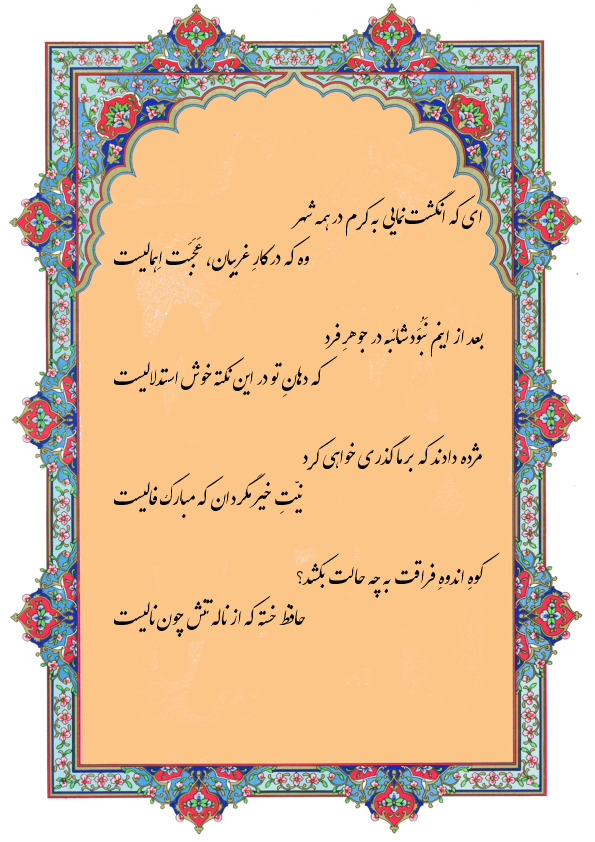 ای که انگشت‌نمایی به کرم در همه شهر
وه که در کارِ غریبان، عَجَبَت اِهمالیست
بعد از اینم نَبُوَد شائبه در جوهرِ فرد
که دهانِ تو در این نکته خوش استدلالیست
مژده دادند که بر ما گذری خواهی کرد
نیّتِ خیر مگردان که مبارک فالیست
کوهِ اندوهِ فراقت به چه حالت بکشد؟
حافظ خسته که از ناله تنش چون نالیست